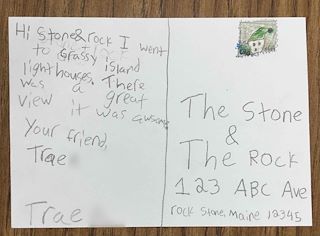 Hi Stone&rock I went
to Grassy island
lighthouses. There
was a great
view it was awsome
Your friend,
Trae
Trae
The Stone
&
The Rock
123 ABC Ave
rock Stone, Maine 12345